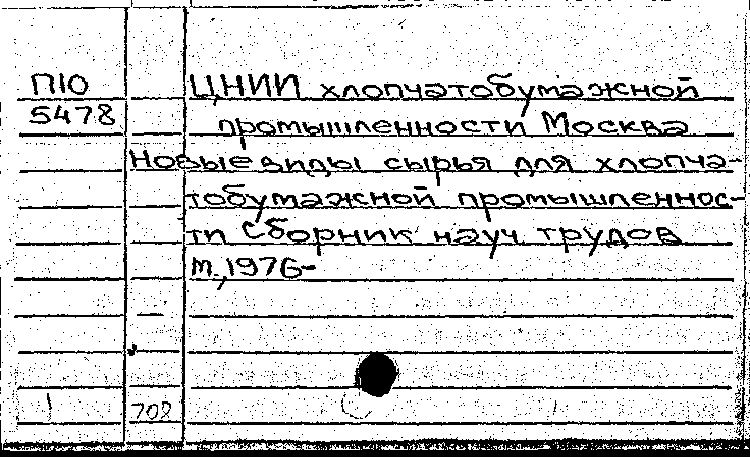 П10
5478
ЦНИИ хлопчатобумажной
промышленности Москва
Новые виды сырья для хлопча-
тобумажной промышленнос-
ти Сборник науч. трудов
М., 1976-
708